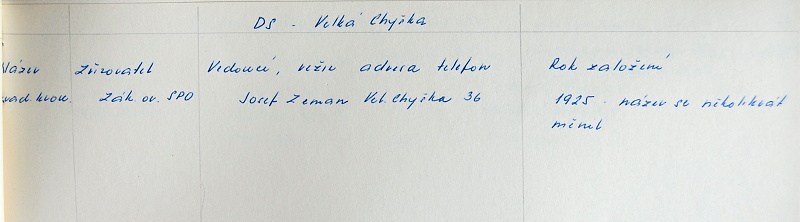 DS - Velká Chyška
Název zřizovatel Vedoucí, režie adresa telefon Rok založení
Zák. or. SPO Josef Zeman Vel. Chyška 36 1925 - název se několikrát
měnil